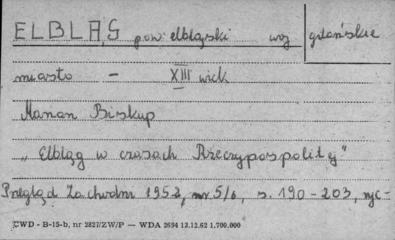 ELBLĄG pow. elbląski woj gdańskie
miasto - XIII wiek
Marian Biskup
„Elbląg w czasach Rzeczypospolitej"
Przegląd Zachodni 1952, nr 5/6, s. 190-203, ryc-
CWD - B-15-b, nr 2827/ZW/P — WDA 2694 12.12.62 1.700.000